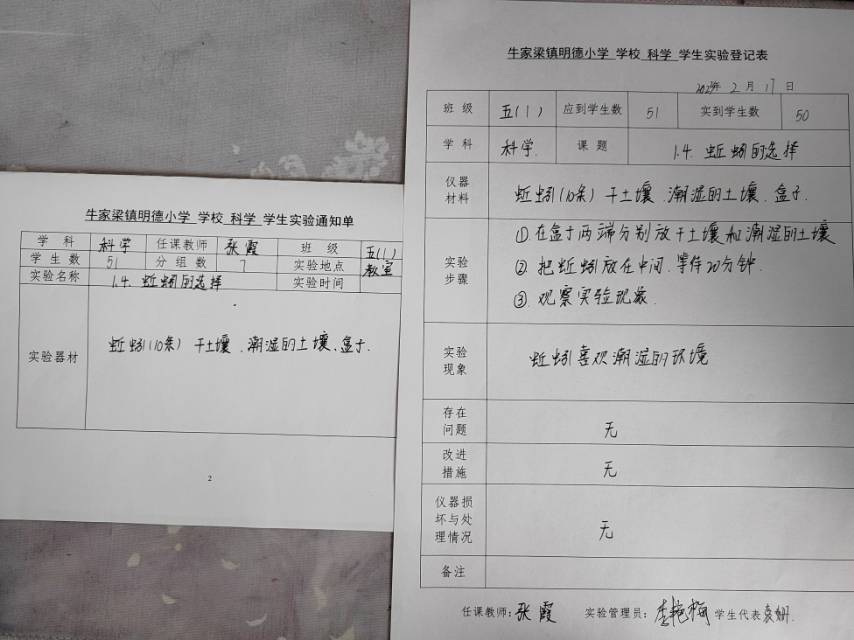 牛家梁镇明德小学 学校 科学 学生实验通知单
学 科 科学 任课教师 张霞 班 级 五(1)
学 生 数 51 分 组 数 7 实验地点 教室
实验名称 1.4. 蚯蚓的选择 实验时间
实验器材 蚯蚓(10条) 干土壤、潮湿的土壤、盒子.
2
牛家梁镇明德小学 学校 科学 学生实验登记表
年 2 月 17 日
班 级 五(1) 应到学生数 51 实到学生数 50
学 科 科学. 课 题 1.4. 蚯蚓的选择
仪器
材料
蚯蚓(10条) 干土壤、潮湿的土壤、盒子.
实验
步骤
①在盒子两端分别放干土壤和潮湿的土壤
②.把蚯蚓放在中间.等待20分钟.
③.观察实验现象.
实验
现象
蚯蚓喜欢潮湿的环境
存在
问题
无
改进
措施
无
仪器损
坏与处
理情况
无
备注
任课教师:张霞 实验管理员:李艳梅 学生代表